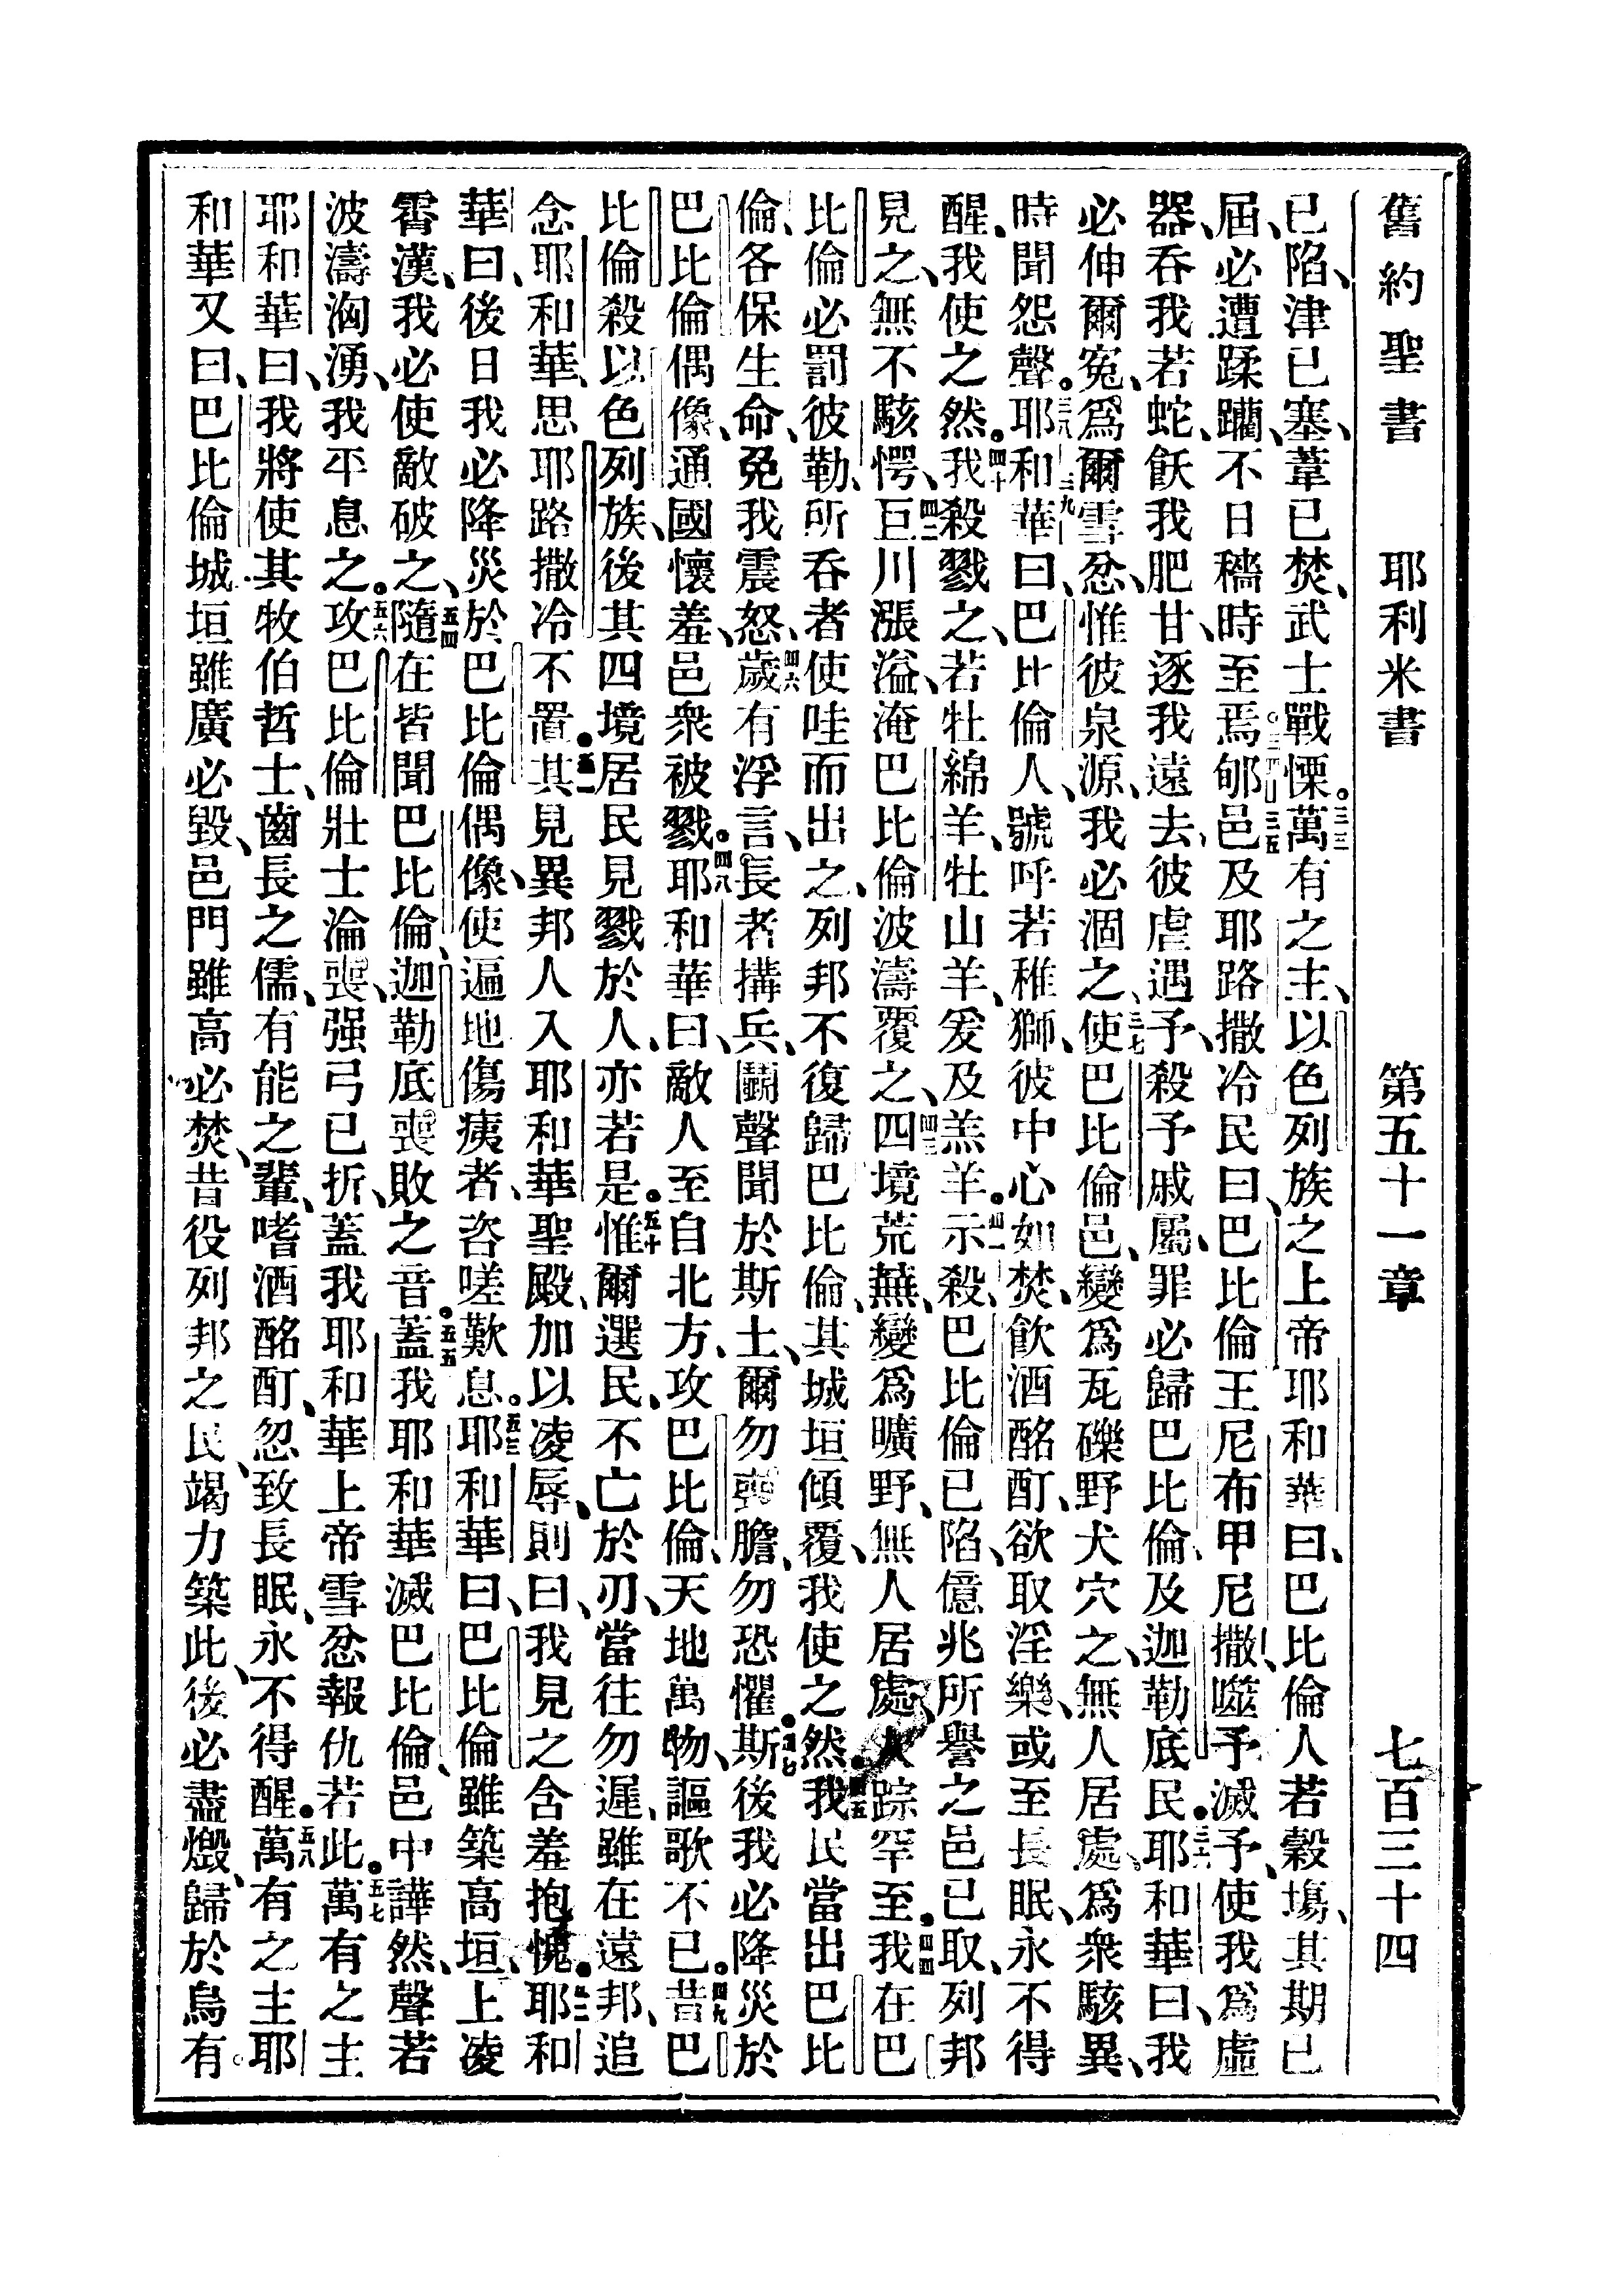 舊約聖書 耶利米書 第五十一章 七百三十四
已陷、津已塞、葦已焚、武士戰慄。三三萬有之主、以色列族之上帝耶和華曰、巴比倫人若穀塲、其期已
屆、必遭蹂躪、不日穡時至焉。三四三五郇邑及耶路撒冷民曰、巴比倫王尼布甲尼撒、噬予滅予、使我爲虛
器、吞我若蛇、飫我肥甘、逐我遠去、彼虐遇予、殺予戚屬、罪必歸巴比倫、及迦勒底民。三六耶和華曰、我
必伸爾寃、爲爾雪忿、惟彼泉源、我必涸之、三七使巴比倫邑、變爲瓦礫、野犬穴之、無人居處、爲衆駭異、
時聞怨聲。三八三九耶和華曰、巴比倫人、號呼若稚獅、彼中心如焚、飲酒酩酊、欲取淫樂、或至長眠、永不得
醒、我使之然。四十我殺戮之、若牡綿羊、牡山羊、爰及羔羊。四一示殺、巴比倫已陷、億兆所譽之邑已取、列邦
見之、無不駭愕、四二巨川漲溢、淹巴比倫、波濤覆之、四三四境荒蕪、變爲曠野、無人居處、人踪罕至。四四我在巴
比倫、必罰彼勒、所吞者使哇而出之、列邦不復歸巴比倫、其城垣傾覆、我使之然。四五我民當出巴比
倫、各保生命、免我震怒、四六歲有浮言、長者搆兵、鬭聲聞於斯土、爾勿喪膽、勿恐懼。四七斯後我必降災於
巴比倫偶像、通國懷羞、邑衆被戮。四八耶和華曰、敵人至自北方、攻巴比倫、天地萬物、謳歌不已。四九昔巴
比倫殺以色列族、後其四境居民見戮於人、亦若是。五十惟爾選民、不亡於刃、當往勿遲、雖在遠邦、追
念耶和華、思耶路撒冷不置。五一其見異邦人入耶和華聖殿、加以凌辱、則曰、我見之含羞抱愧。五二耶和
華曰、後日我必降災於巴比倫偶像、使遍地傷痍者、咨嗟歎息。五三耶和華曰、巴比倫雖築高垣、上凌
霄漢、我必使敵破之、五四隨在皆聞巴比倫、迦勒底喪敗之音。五五蓋我耶和華滅巴比倫、邑中譁然、聲若
波濤洶湧、我平息之。五六攻巴比倫、壯士淪喪、强弓已折、蓋我耶和華上帝雪忿報仇若此。五七萬有之主
耶和華曰、我將使其牧伯哲士、齒長之儒、有能之輩、嗜酒酩酊、忽致長眠、永不得醒。五八萬有之主耶
和華又曰、巴比倫城垣雖廣必毀、邑門雖高必焚、昔役列邦之民、竭力築此、後必盡燬、歸於烏有。